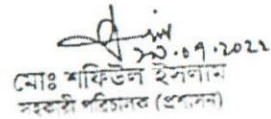 ২০.০৭.২০২২
মোঃ শফিউল ইসলাম
সহকারী পরিচালক (প্রশাসন)